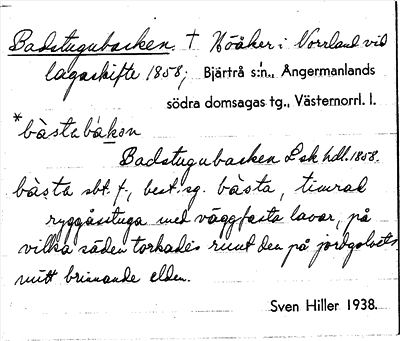 Badstugubacken. † Nöåker i Norrland vid
lagaskifte 1858; Bjärtrå s:n., Ångermanlands
södra domsagas tg., Västernorrl. l.
*bàstabákən
Badstugubacken Lsk hdl. 1858.
bàsta sbt. f., best. sg. bàsta, timrad
ryggåsstuga med väggfasta lavar, på
vilka säden torkades runt den på jordgolvets
mitt brinnande elden.
Sven Hiller 1938.